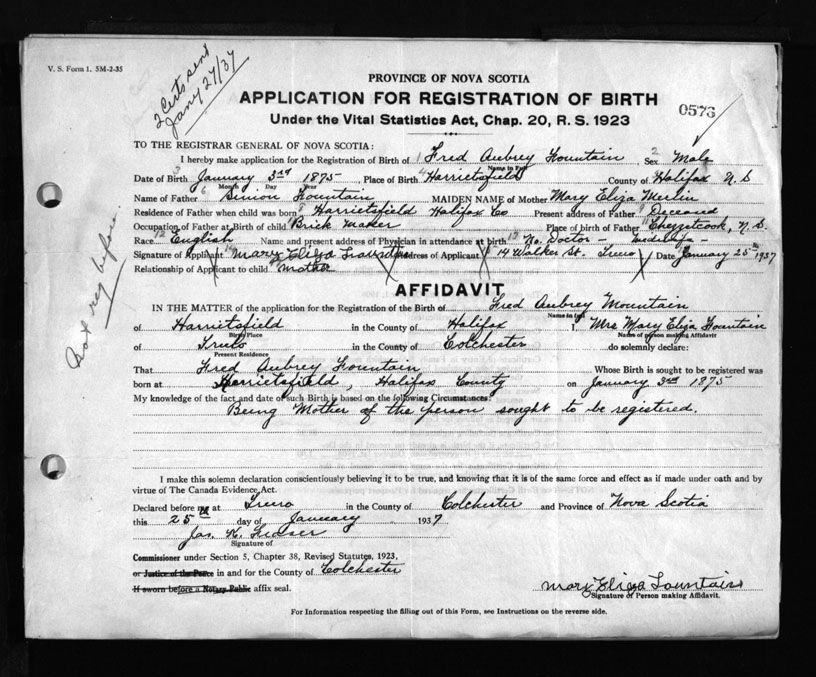 V. S. Form 1. 5M-2-35
2 Certs sent
Jany 27/37
PROVINCE OF NOVA SCOTIA
APPLICATION FOR REGISTRATION OF BIRTH
Under the Vital Statistics Act, Chap. 20, R. S. 1923
0576
TO THE REGISTRAR GENERAL OF NOVA SCOTIA:
I hereby make application for the Registration of Birth of 1 Fred Aubrey Fountain, Sex 2 Male
Name in Full
Date of Birth 3 January 3rd 1875, Place of Birth 4 Harrietsfield County of Halifax N. S
Month Day Year
Name of Father 6 Simon Fountain MAIDEN NAME of Mother Mary Eliza Merlin
Residence of Father when child was born 8 Harrietsfield Halifax Co Present address of Father Deceased
Occupation of Father at Birth of child Brick Maker Place of Birth of Father Chezzetcook, N. S.
Race 12 English Name and present address of Physician in attendance at birth 13 No Doctor -
Signature of Applicant Mary Eliza Fountain Address of Applicant 14 Walker St. Truro Date January 25th 1937
Relationship of Applicant to child Mother
Not reg before.
AFFIDAVIT
IN THE MATTER of the application for the Registration of the Birth of Fred Aubrey Mountain
Name in full
of Harrietsfield in the County of Halifax I, Mrs Mary Eliza Fountain
Birth Place Name of person making Affidavit
of Truro in the County of Colchester do solemnly declare:
Present Residence
That Fred Aubrey Fountain Whose Birth is sought to be registered was
born at Harrietsfield, Halifax County on January 3rd 1875
My knowledge of the fact and date of such Birth is based on the following Circumstances:
Being Mother of the person sought to be registered.
I make this solemn declaration conscientiously believing it to be true, and knowing that it is of the same force and effect as if made under oath and by
virtue of The Canada Evidence Act.
Declared before me at Truro in the County of Colchester and Province of Nova Scotia
this 25th day of January 1937
Jas. K. Fraser
Signature of
Commissioner under Section 5, Chapter 38, Revised Statutes, 1923,
or Justice of the Peace in and for the County of Colchester
If sworn before a Notary Public affix seal.
Mary Eliza Fountain
Signature of Person making Affidavit.
For Information respecting the filling out of this Form, see Instructions on the reverse side.